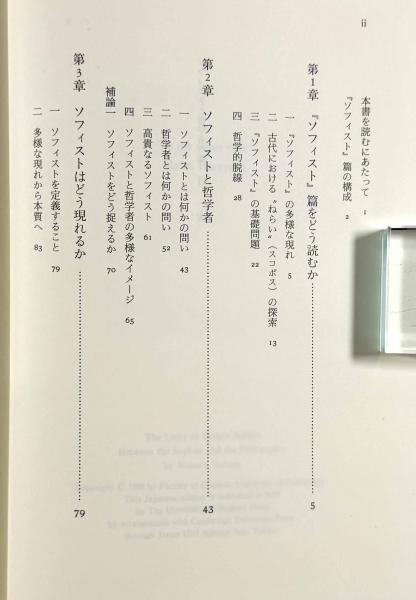 ii
本書を読むにあたって 1
『ソフィスト』篇の構成 2
第1章 『ソフィスト』篇をどう読むか 5
一 『ソフィスト』の多様な現れ 5
二 古代における〝ねらい〟(スコポス)の探索 13
三 『ソフィスト』の基礎問題 22
四 哲学的脱線 28
第2章 ソフィストと哲学者 43
一 ソフィストとは何かの問い 43
二 哲学者とは何かの問い 52
三 高貴なるソフィスト 61
四 ソフィストと哲学者の多様なイメージ 65
補論一 ソフィストをどう捉えるか 70
第3章 ソフィストはどう現れるか 79
一 ソフィストを定義すること 79
二 多様な現れから本質へ 83